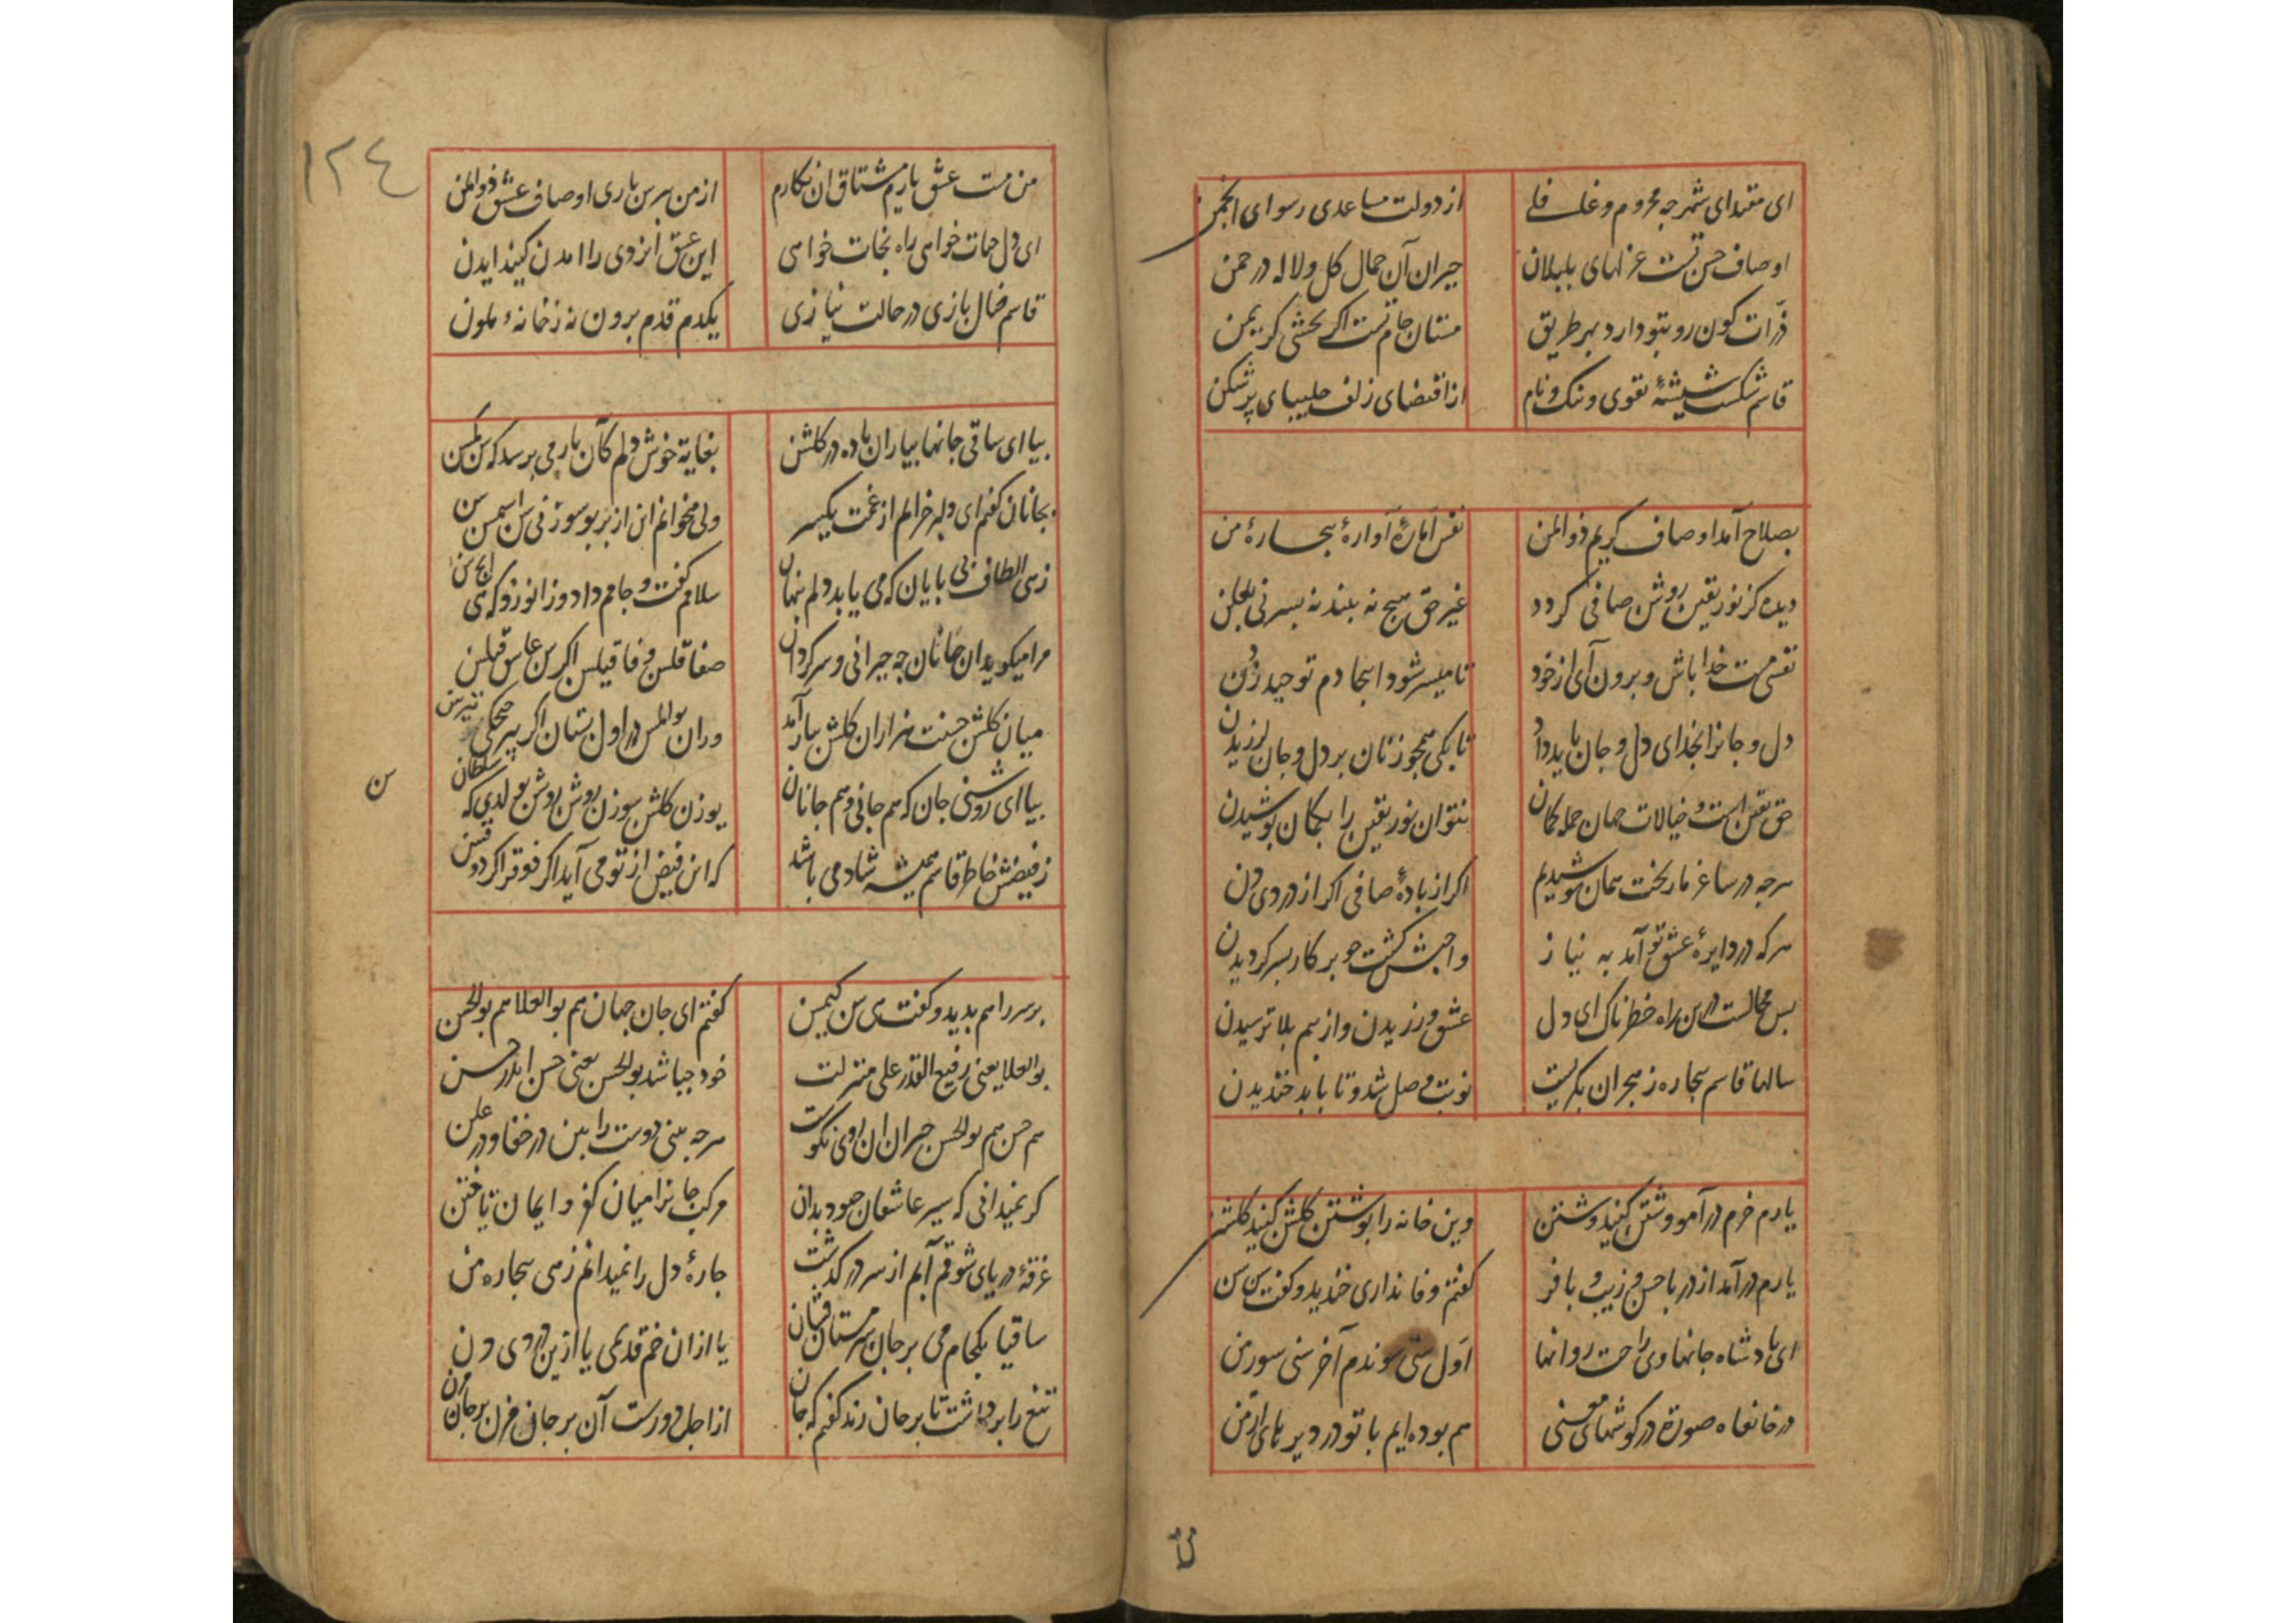 ای مقتدای شهر چه محروم و غافلی
از دولت مساعدی رسوای انجمن
اوصاف حسن تست غزلهای بلبلان
حیران آن جمال گل و لاله در چمن
ذرات کون رو بتو دارد بهر طریق
مستان جام تست اگر بخشی گر یمن
قاسم شکست شیشهٔ تقوی و ننک و نام
از اقتضای زلف چلیپای پرشکن
بصلاح آمد اوصاف کریم ذوالمن
نفس امارهٔ آوارهٔ بیچارهٔ من
دیده کز نور یقین روشن و صافی کردد
غیر حق هیچ نه بیند نه بسر نی بعلن
نفسی مست خدا باش و برون آی از خود
تا میسر شود اینجا دم توحید زدن
دل و جانرا بخدای دل و جان باید داد
تا بکی همچو زنان بر دل و جان لرزیدن
حق یقین است و خیالات جهان جمله کمان
نتوان نور یقین را بکمان پوشیدن
هرچه در ساغر ما ریخت همان نوشیدیم
اگر از بادهٔ صافی اگر از دردی دن
هرکه در دایرهٔ عشق تو آمد به نیاز
واجبش کشت چو پرکار بسر کردیدن
بس محالست درین راه خطرناک ای دل
عشق ورزیدن و از بیم بلا ترسیدن
سالها قاسم بیچاره ز هجران بکریست
نوبت وصل شد و تا باید خندیدن
یارم خرم درآمد وشتن کنید وشتن
وین خانه را بوشتن کلشن کنید کلشن
یارم درآمد از در با حسن و زیب و با فر
کفتم وفا نداری خندید و کفت سن سن
ای پادشاه جانها وی راحت روانها
اول سنی سوندم آخر سنی سورمن
در خانقاه صورة در کوشهای معنی
هم بوده ایم با تو در دیر پای ارمن
۱۲٤
من مست عشق یارم مشتاق ان نکارم
از من بپرس باری اوصاف عشق ذوالمن
ای دل حیات خواهی راه نجات خواهی
این عشق ایزدی را امدن کنید ایدن
قاسم خیال بازی در حالت نیازی
یکدم قدم برون نه زخانهٔ ملون
بیا ای ساقی جانها بیار ان باده در کلشن
بغایة خوش دلم کان یار می پرسد که سن کمسن
بجانان کفتم ای دلبر خرابم از غمت یکسر
ولی میخوانم این از بر
زهی الطاف بی پایان که می یابد دلم پنهان
سلامم کفت و جامم داد و زانو زد که
مرا میکوید ان جانان چه حیرانی و سرکردان
میان کلشن حسنت هزاران کلشن بار آمد
بیا ای روشنی جان که هم جانی و هم جانان
سن
ز فیضش خاطر قاسم همیشه شاد می باشد
که این فیض از تو می آید
بر سر راهم بدید و کفت هی سن کیمسن
کفتم ای جان جهان هم بوالعلا هم بوالحسن
بوالعلا یعنی رفیع القدر علی منزلت
خود چباشد بوالحسن یعنی حسن اندر حسن
هم حسن هم بوالحسن حیران ان روی نکوست
هرچه بینی دوست را بین در خفا و در علن
کر نمیدانی که سیر عاشقان چبود بدان
مرکب جانرا میان کفر و ایمان تاختن
غرقهٔ دریای شوقم آبم از سر درکذشت
چارهٔ دل را نمیدانم زهی بیچاره من
ساقیا یکجام می بر جان سرمستان فشان
یا ازان خم قدیمی یا ازین دردی دن
تیغ را برداشت تا بر جان زند کفتم که جان
از اجل دورست آن بر جان مزن بر جان مزن